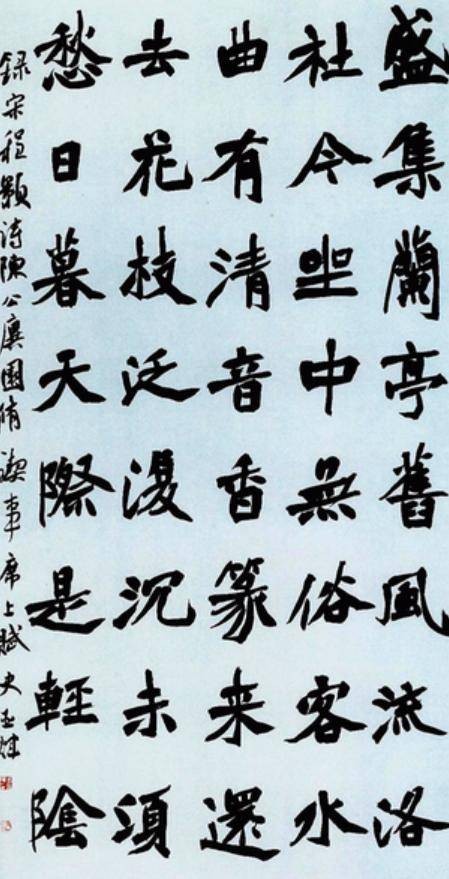 盛集蘭亭舊風流洛
社今坐中無俗客水
曲有清音香篆来還
去花枝泛復沉未須
愁日暮天際是輕陰
録宋程顥詩陳公廙園脩禊事席上賦 史